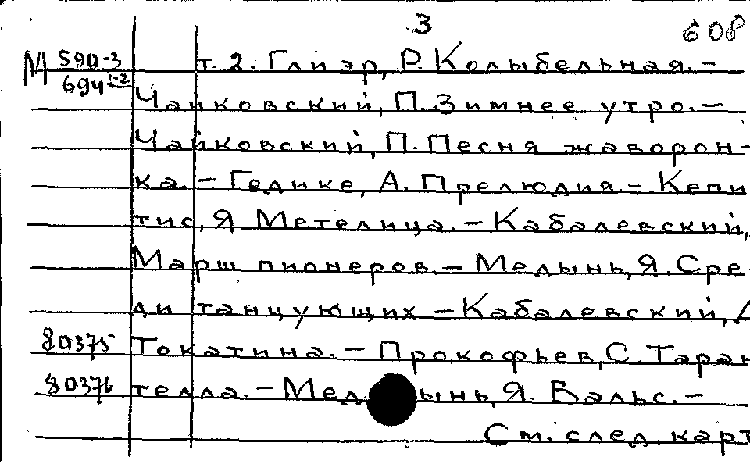 3 608
М 590-3 т. 2. Глиэр, Р. Колыбельная. –
694 1-2
Чайковский, П. Зимнее утро. –
Чайковский, П. Песня жаворон-
ка. – Гедике, А. Прелюдия – Кепи
тис, Я Метелица. – Кабалевский,
Марш пионеров. – Медынь, Я. Сре
ди танцующих – Кабалевский,
80375 Токатина. – Прокофьев, С. Таран
80376 телла. – Медынь, Я. Вальс. –
См. след. карт